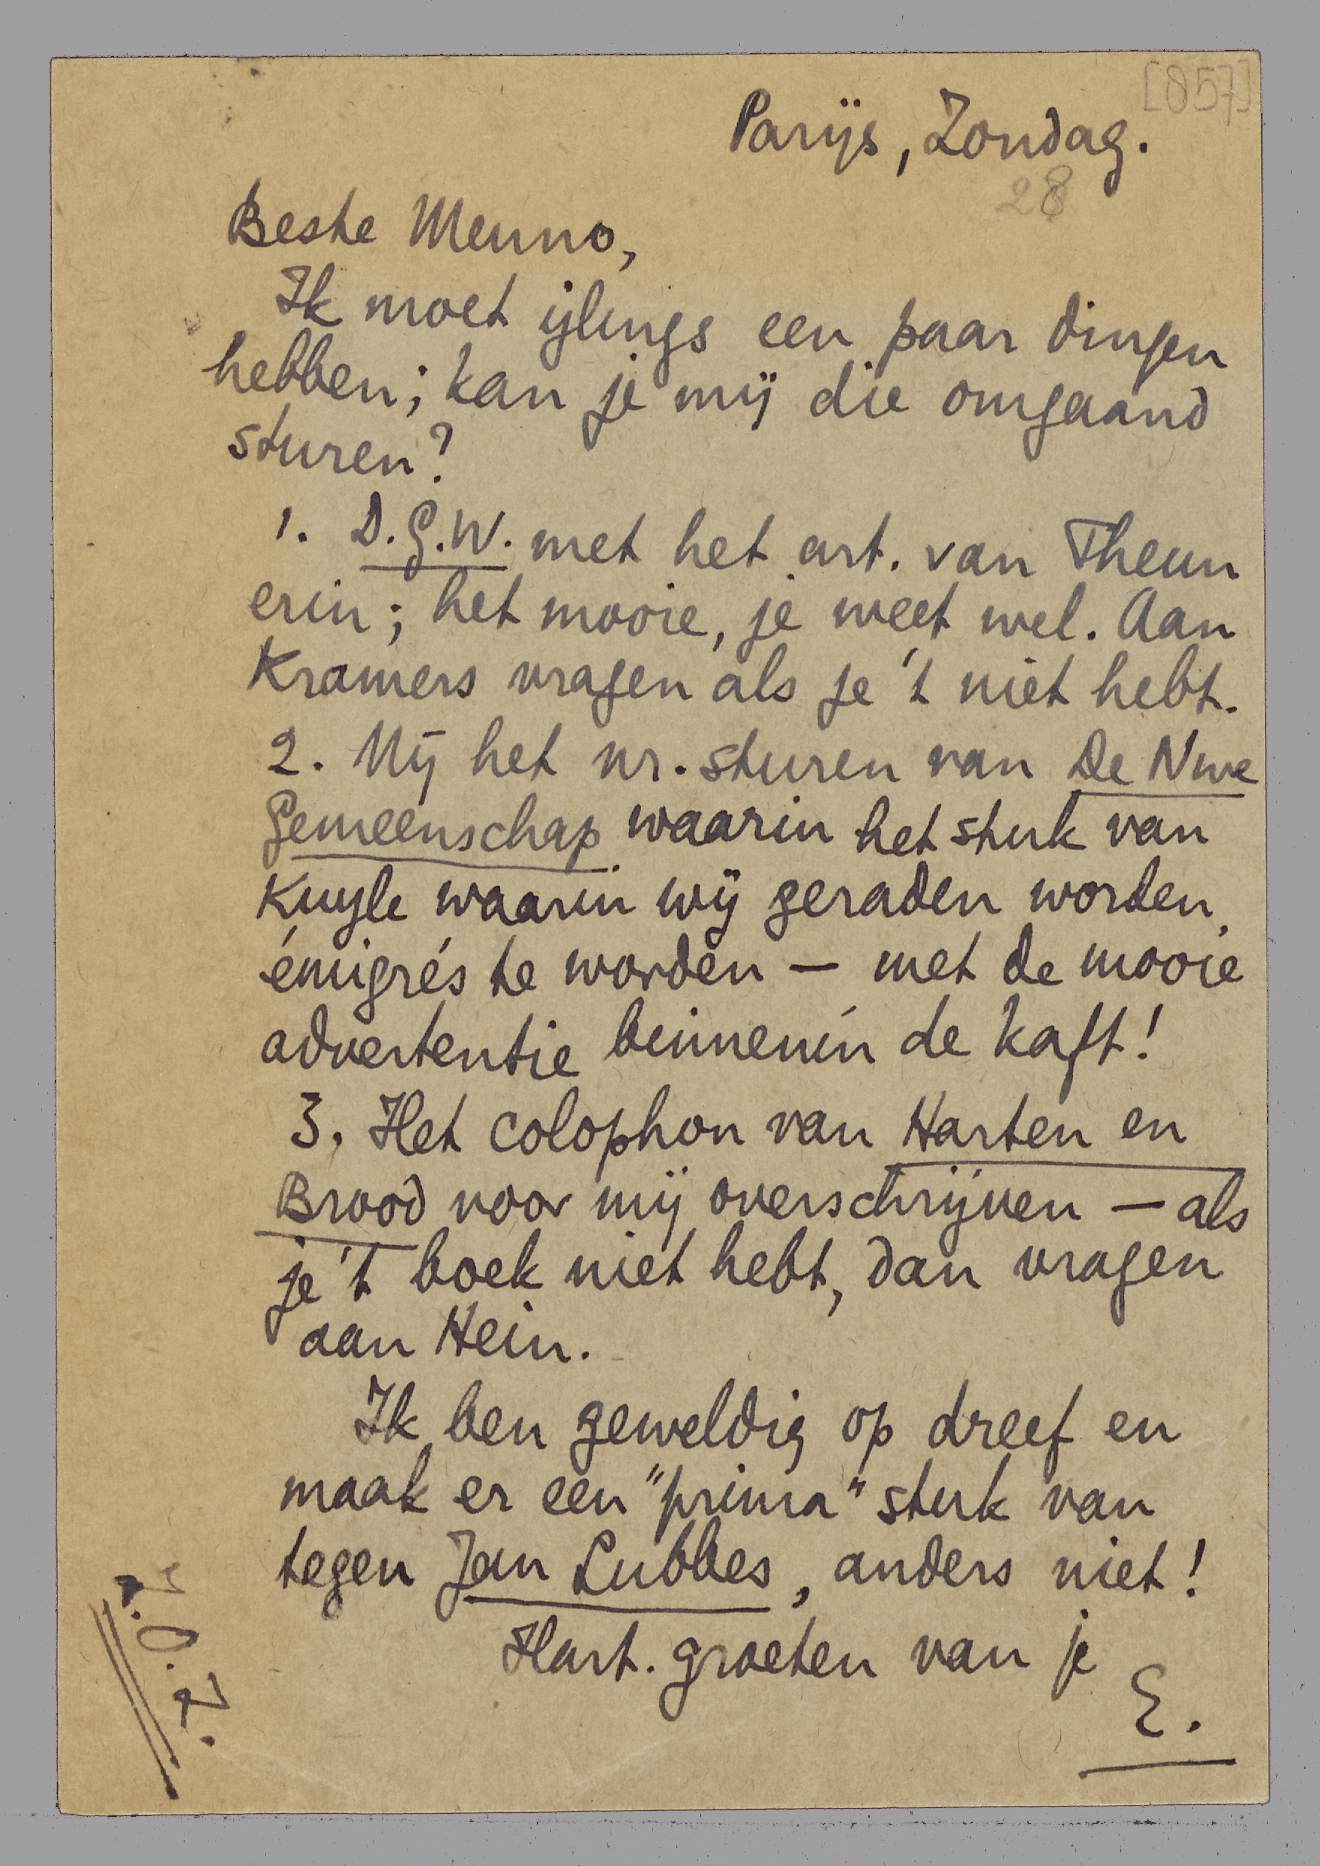 [857]
Parijs, Zondag.
28
Beste Menno,
Ik moet ijlings een paar dingen
hebben; kan je mij die omgaand
sturen?
1. D.G.W. met het art. van Theun
erin; het mooie, je weet wel. Aan
Kramers vragen als je 't niet hebt.
2. Mij het nr. sturen van De Nwe
Gemeenschap waarin het stuk van
Kuyle waarin wij geraden worden
émigrés te worden — met de mooie
advertentie binnenín de kaft!
3. Het colophon van Harten en
Brood voor mij overschrijven — als
je 't boek niet hebt, dan vragen
aan Hein.
Ik ben geweldig op dreef en
maak er een "prima" stuk van
tegen Jan Lubbes, anders niet!
Hart. groeten van je
E.
Z.O.Z.